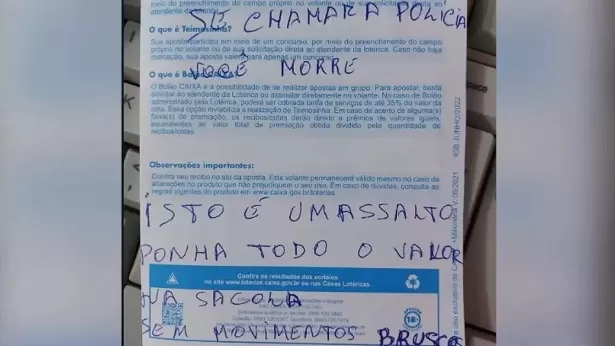 do meio do preenchimento do campo próprio no volante ou de sua solicitação direta ao
atendente da lotérica.
SE CHAMAR A POLICIA
O que é Teimosinha?
Sua aposta participa em mais de um concurso, por meio do preenchimento do campo
próprio no volante ou de sua solicitação direta ao atendente da Lotérica. Caso não haja
marcação, sua aposta valerá para apenas um concurso.
VOCÊ MORRE
O que é Bolão CAIXA?
O Bolão CAIXA é a possibilidade de se realizar apostas em grupo. Para apostar, basta
solicitar ao atendente da Lotérica ou assinalar diretamente no volante. No caso de Bolão
administrado pela Lotérica, poderá ser cobrada tarifa de serviços de até 35% do valor da
cota. Essa opção inviabiliza a realização de Teimosinha. Em caso de acerto de alguma(s)
faixa(s) de premiação, os recibos/cotas farão direito a prêmios de valores iguais,
equivalentes ao valor total de premiação obtida dividido pela quantidade de
recibos/cotas.
Observações importantes:
Confira seu recibo no ato da aposta. Este volante permanecerá válido mesmo no caso de
alterações no produto que não prejudiquem o seu uso. Em caso de dúvidas, consulte as
regras vigentes do produto em www.caixa.gov.br/loterias
ISTO É UM ASSALTO
PONHA TODO O VALOR
Confira os resultados dos sorteios
no site www.loterias.caixa.gov.br ou nas Casas Lotéricas
NA SACOLA
SEM MOVIMENTOS BRUSCO
18+
IGB JUNHO/2022
09/2021